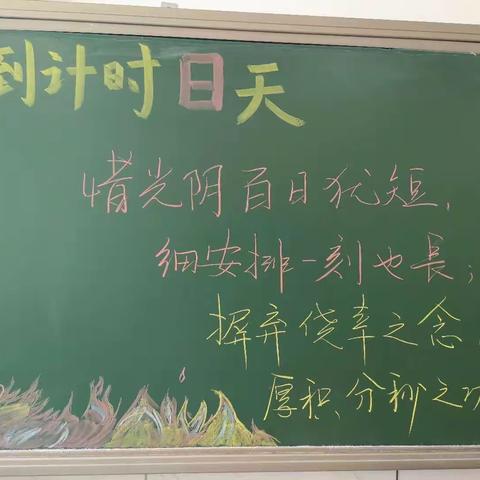 到计时日天
惜光阴百日犹短，
细安排一刻也長；
摒弃侥幸之念，
厚积分秒之功